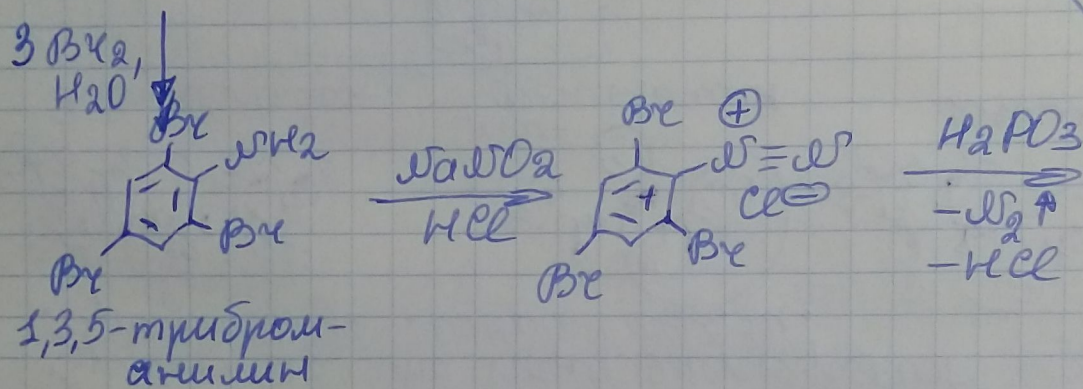 3 Br2,
H2O
Br
NH2
Br
Br
1,3,5-трибром-
анилин
NaNO2
HCl
Br
⊕
N≡N
Cl⊖
Br
Br
H2PO3
-N2↑
-HCl